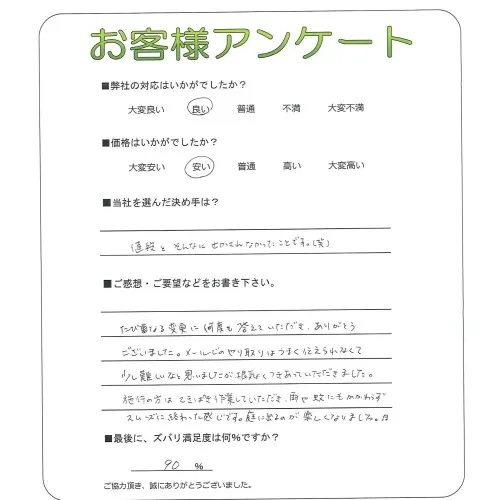 お客様アンケート
■弊社の対応はいかがでしたか？
大変良い 良い 普通 不満 大変不満
■価格はいかがでしたか？
大変安い 安い 普通 高い 大変高い
■当社を選んだ決め手は？
値段と そんなに せかされなかったことです。(笑)
■ご感想・ご要望などをお書き下さい。
たび重なる変更に何度も答えていただき、ありがとう
ございました。メールでのやり取りはうまく伝えられなくて
少し難しいなと思いましたが、根気よくつきあっていただきました。
施行の方は てきぱき作業していただき、雨や蚊にもかかわらず
スムーズに終わった感じです。庭に出るのが楽しくなりました。
■最後に、ズバリ満足度は何％ですか？
90 ％
ご協力頂き、誠にありがとうございました。